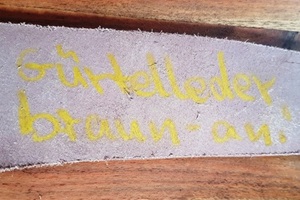 Gürtelleder
braun-an!